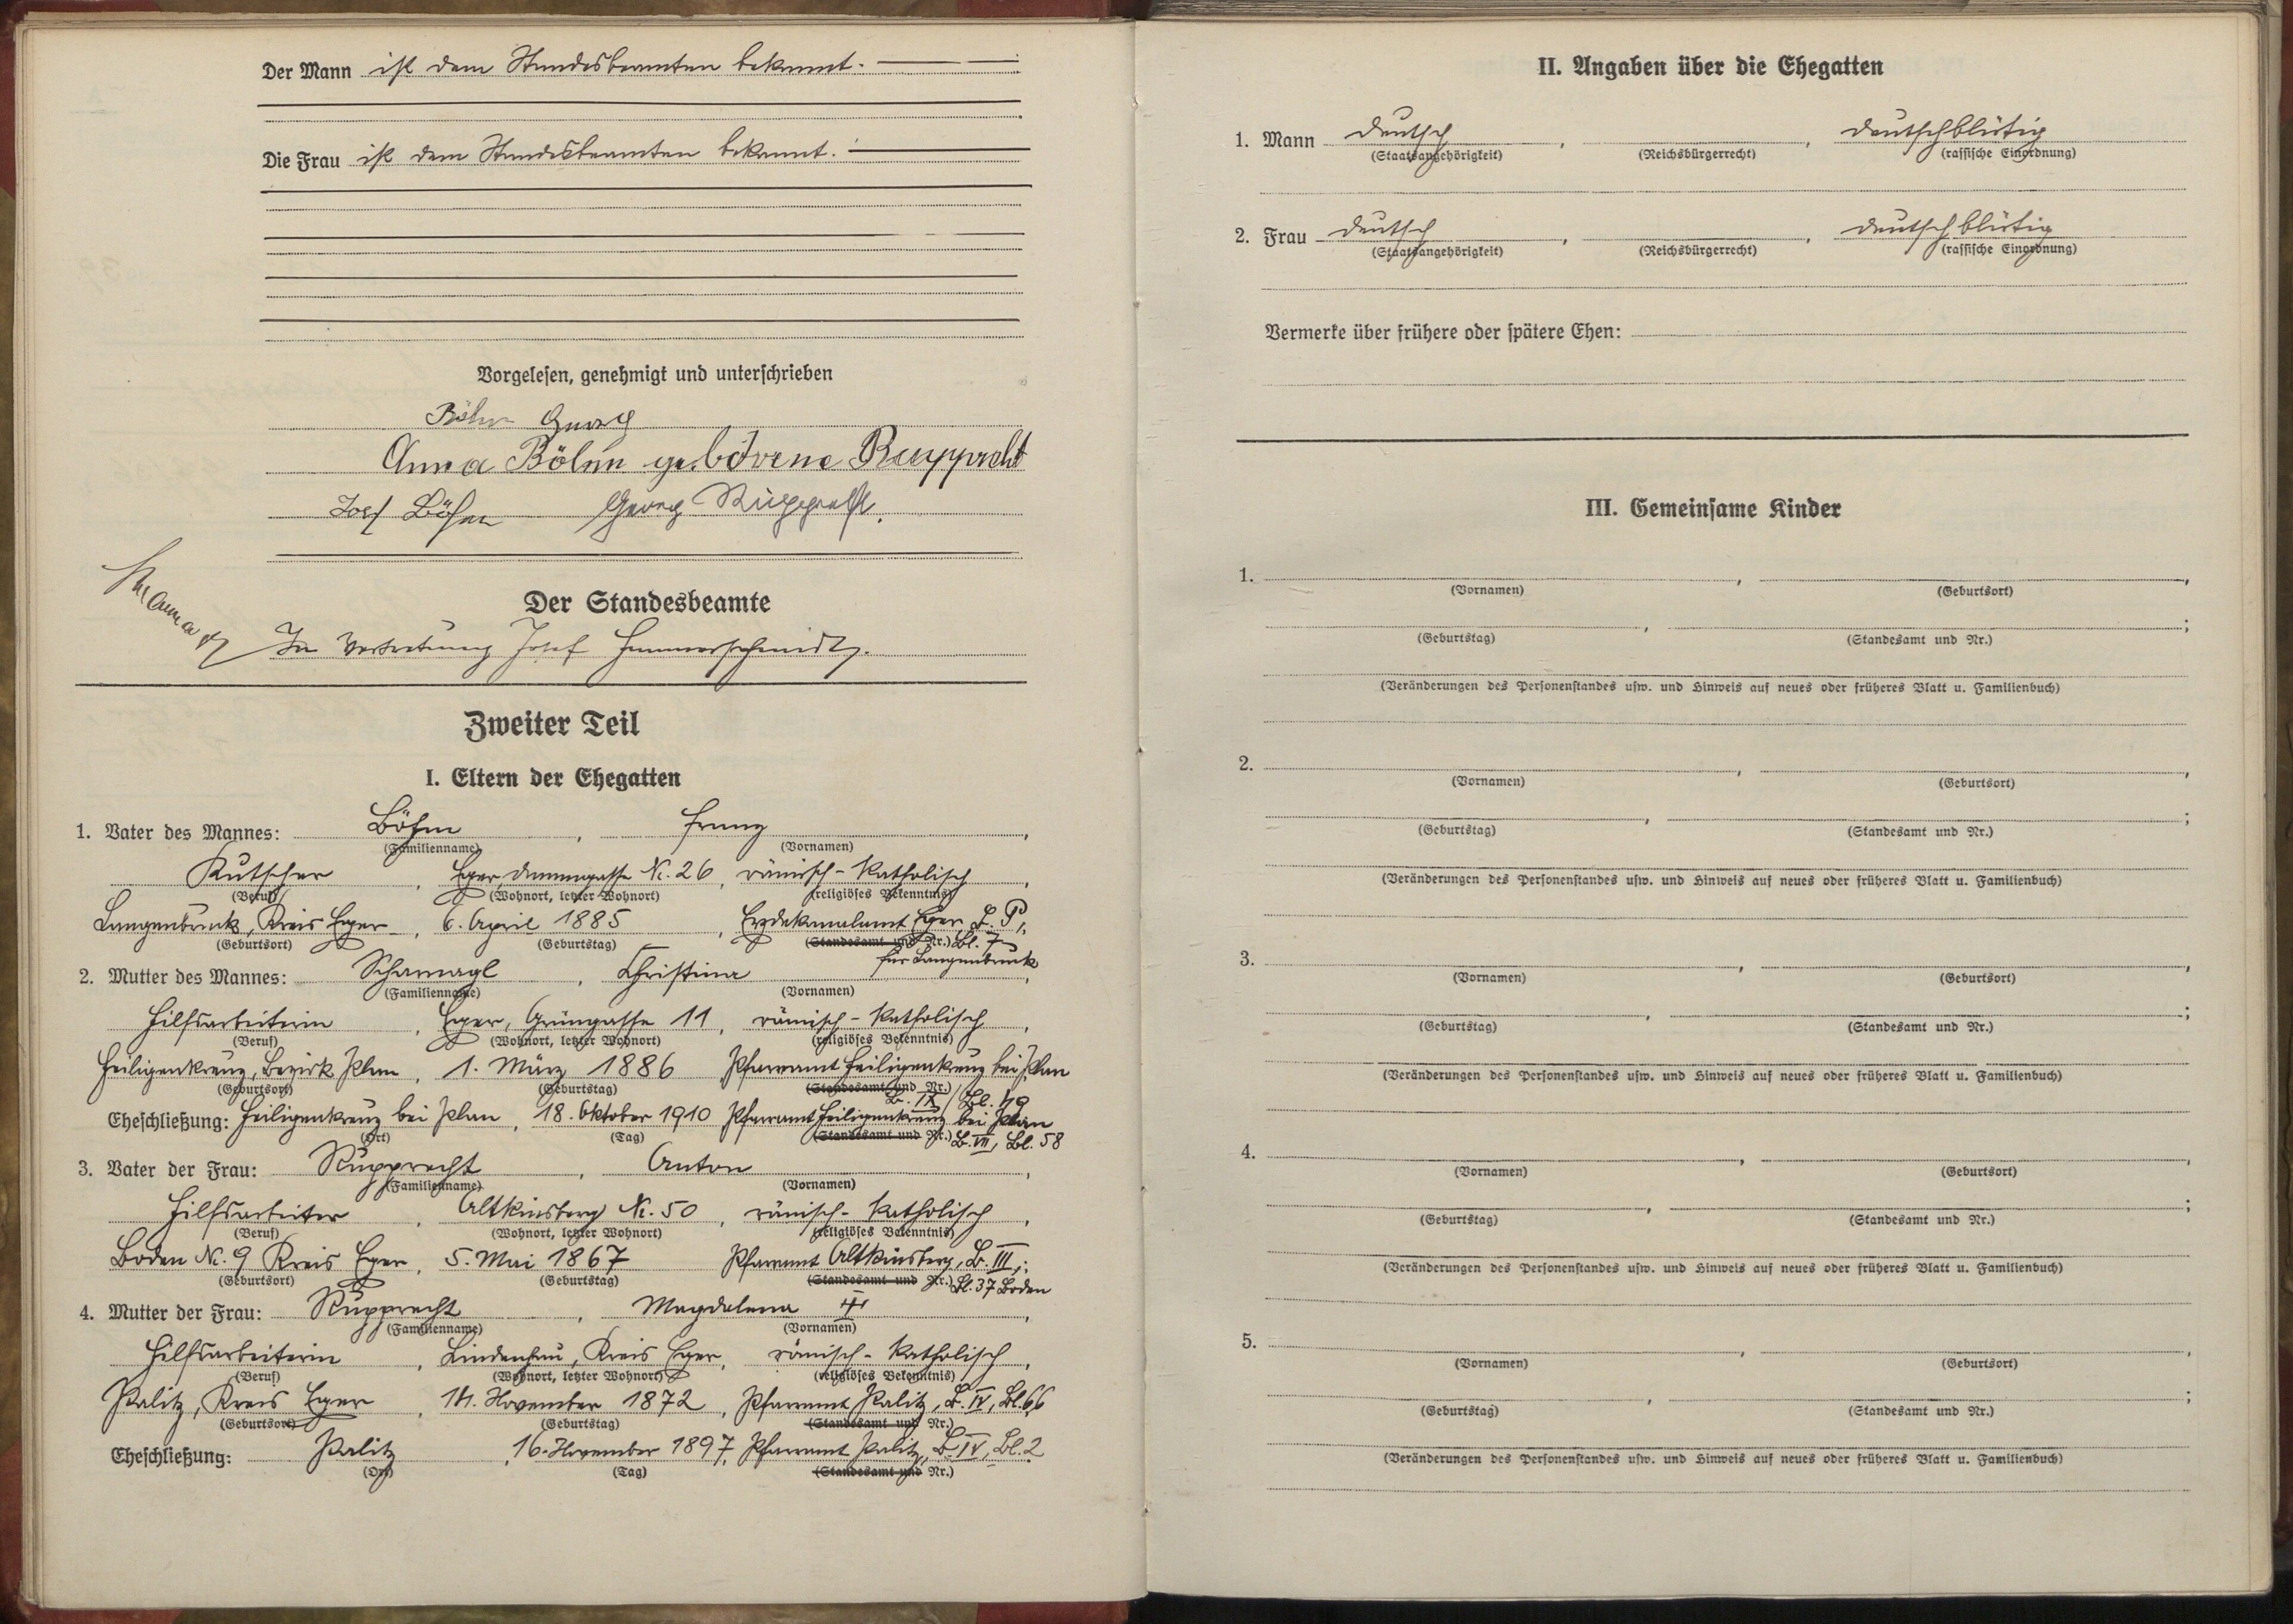 Der Mann ist dem Standesbeamten bekannt.
Die Frau ist dem Standesbeamten bekannt.
Vorgelesen, genehmigt und unterschrieben
Böhm Georg
Anna Böhm geborene Rupprecht
Josef Böhm Georg Rupprecht.
Der Standesbeamte
In Vertretung Josef Hammerschmidt.
Zweiter Teil
I. Eltern der Ehegatten
1. Vater des Mannes: Böhm, Franz,
(Familienname) (Vornamen)
Kutscher, Eger, Nr. 26, römisch-katholisch,
(Beruf) (Wohnort, letzter Wohnort) (religiöses Bekenntnis)
Langenbruck, Kreis Eger, 6. April 1885, Erzdekanalamt Eger, L. P,
(Geburtsort) (Geburtstag) (Standesamt und Nr.) Bl. 7
für Langenbruck
2. Mutter des Mannes: Scharnagl, Christina,
(Familienname) (Vornamen)
Hilfsarbeiterin, Eger, Grüngasse 11, römisch-katholisch,
(Beruf) (Wohnort, letzter Wohnort) (religiöses Bekenntnis)
Heiligenkreuz, Bezirk Plan, 1. März 1886 Pfarramt Heiligenkreuz bei Plan
(Geburtsort) (Geburtstag) (Standesamt und Nr.)
B. IX, Bl. 49
Eheschließung: Heiligenkreuz bei Plan, 18. Oktober 1910 Pfarramt Heiligenkreuz bei Plan
(Ort) (Tag) (Standesamt und Nr.) B. VII, Bl. 58
3. Vater der Frau: Rupprecht, Anton,
(Familienname) (Vornamen)
Hilfsarbeiter, Altkinsberg Nr. 50, römisch-katholisch,
(Beruf) (Wohnort, letzter Wohnort) (religiöses Bekenntnis)
Boden Nr. 9 Kreis Eger, 5. Mai 1867 Pfarramt Altkinsberg, B. III,
(Geburtsort) (Geburtstag) (Standesamt und Nr.) Bl. 37 Boden
4. Mutter der Frau: Rupprecht, Magdalena
(Familienname) (Vornamen)
Hilfsarbeiterin, Lindenhau, Kreis Eger, römisch-katholisch,
(Beruf) (Wohnort, letzter Wohnort) (religiöses Bekenntnis)
Palitz, Kreis Eger, 14. November 1872, Pfarramt Palitz, B. IV, Bl. 66
(Geburtsort) (Geburtstag) (Standesamt und Nr.)
Eheschließung: Palitz, 16. November 1897, Pfarramt Palitz, B. IV, Bl. 2
(Ort) (Tag) (Standesamt und Nr.)
II. Angaben über die Ehegatten
1. Mann deutsch, , deutschblütig
(Staatsangehörigkeit) (Reichsbürgerrecht) (rassische Einordnung)
2. Frau deutsch, , deutschblütig
(Staatsangehörigkeit) (Reichsbürgerrecht) (rassische Einordnung)
Vermerke über frühere oder spätere Ehen:
III. Gemeinsame Kinder
1. , ,
(Vornamen) (Geburtsort)
, ;
(Geburtstag) (Standesamt und Nr.)
(Veränderungen des Personenstandes usw. und Hinweis auf neues oder früheres Blatt u. Familienbuch)
2. , ,
(Vornamen) (Geburtsort)
, ;
(Geburtstag) (Standesamt und Nr.)
(Veränderungen des Personenstandes usw. und Hinweis auf neues oder früheres Blatt u. Familienbuch)
3. , ,
(Vornamen) (Geburtsort)
, ;
(Geburtstag) (Standesamt und Nr.)
(Veränderungen des Personenstandes usw. und Hinweis auf neues oder früheres Blatt u. Familienbuch)
4. , ,
(Vornamen) (Geburtsort)
, ;
(Geburtstag) (Standesamt und Nr.)
(Veränderungen des Personenstandes usw. und Hinweis auf neues oder früheres Blatt u. Familienbuch)
5. , ,
(Vornamen) (Geburtsort)
, ;
(Geburtstag) (Standesamt und Nr.)
(Veränderungen des Personenstandes usw. und Hinweis auf neues oder früheres Blatt u. Familienbuch)